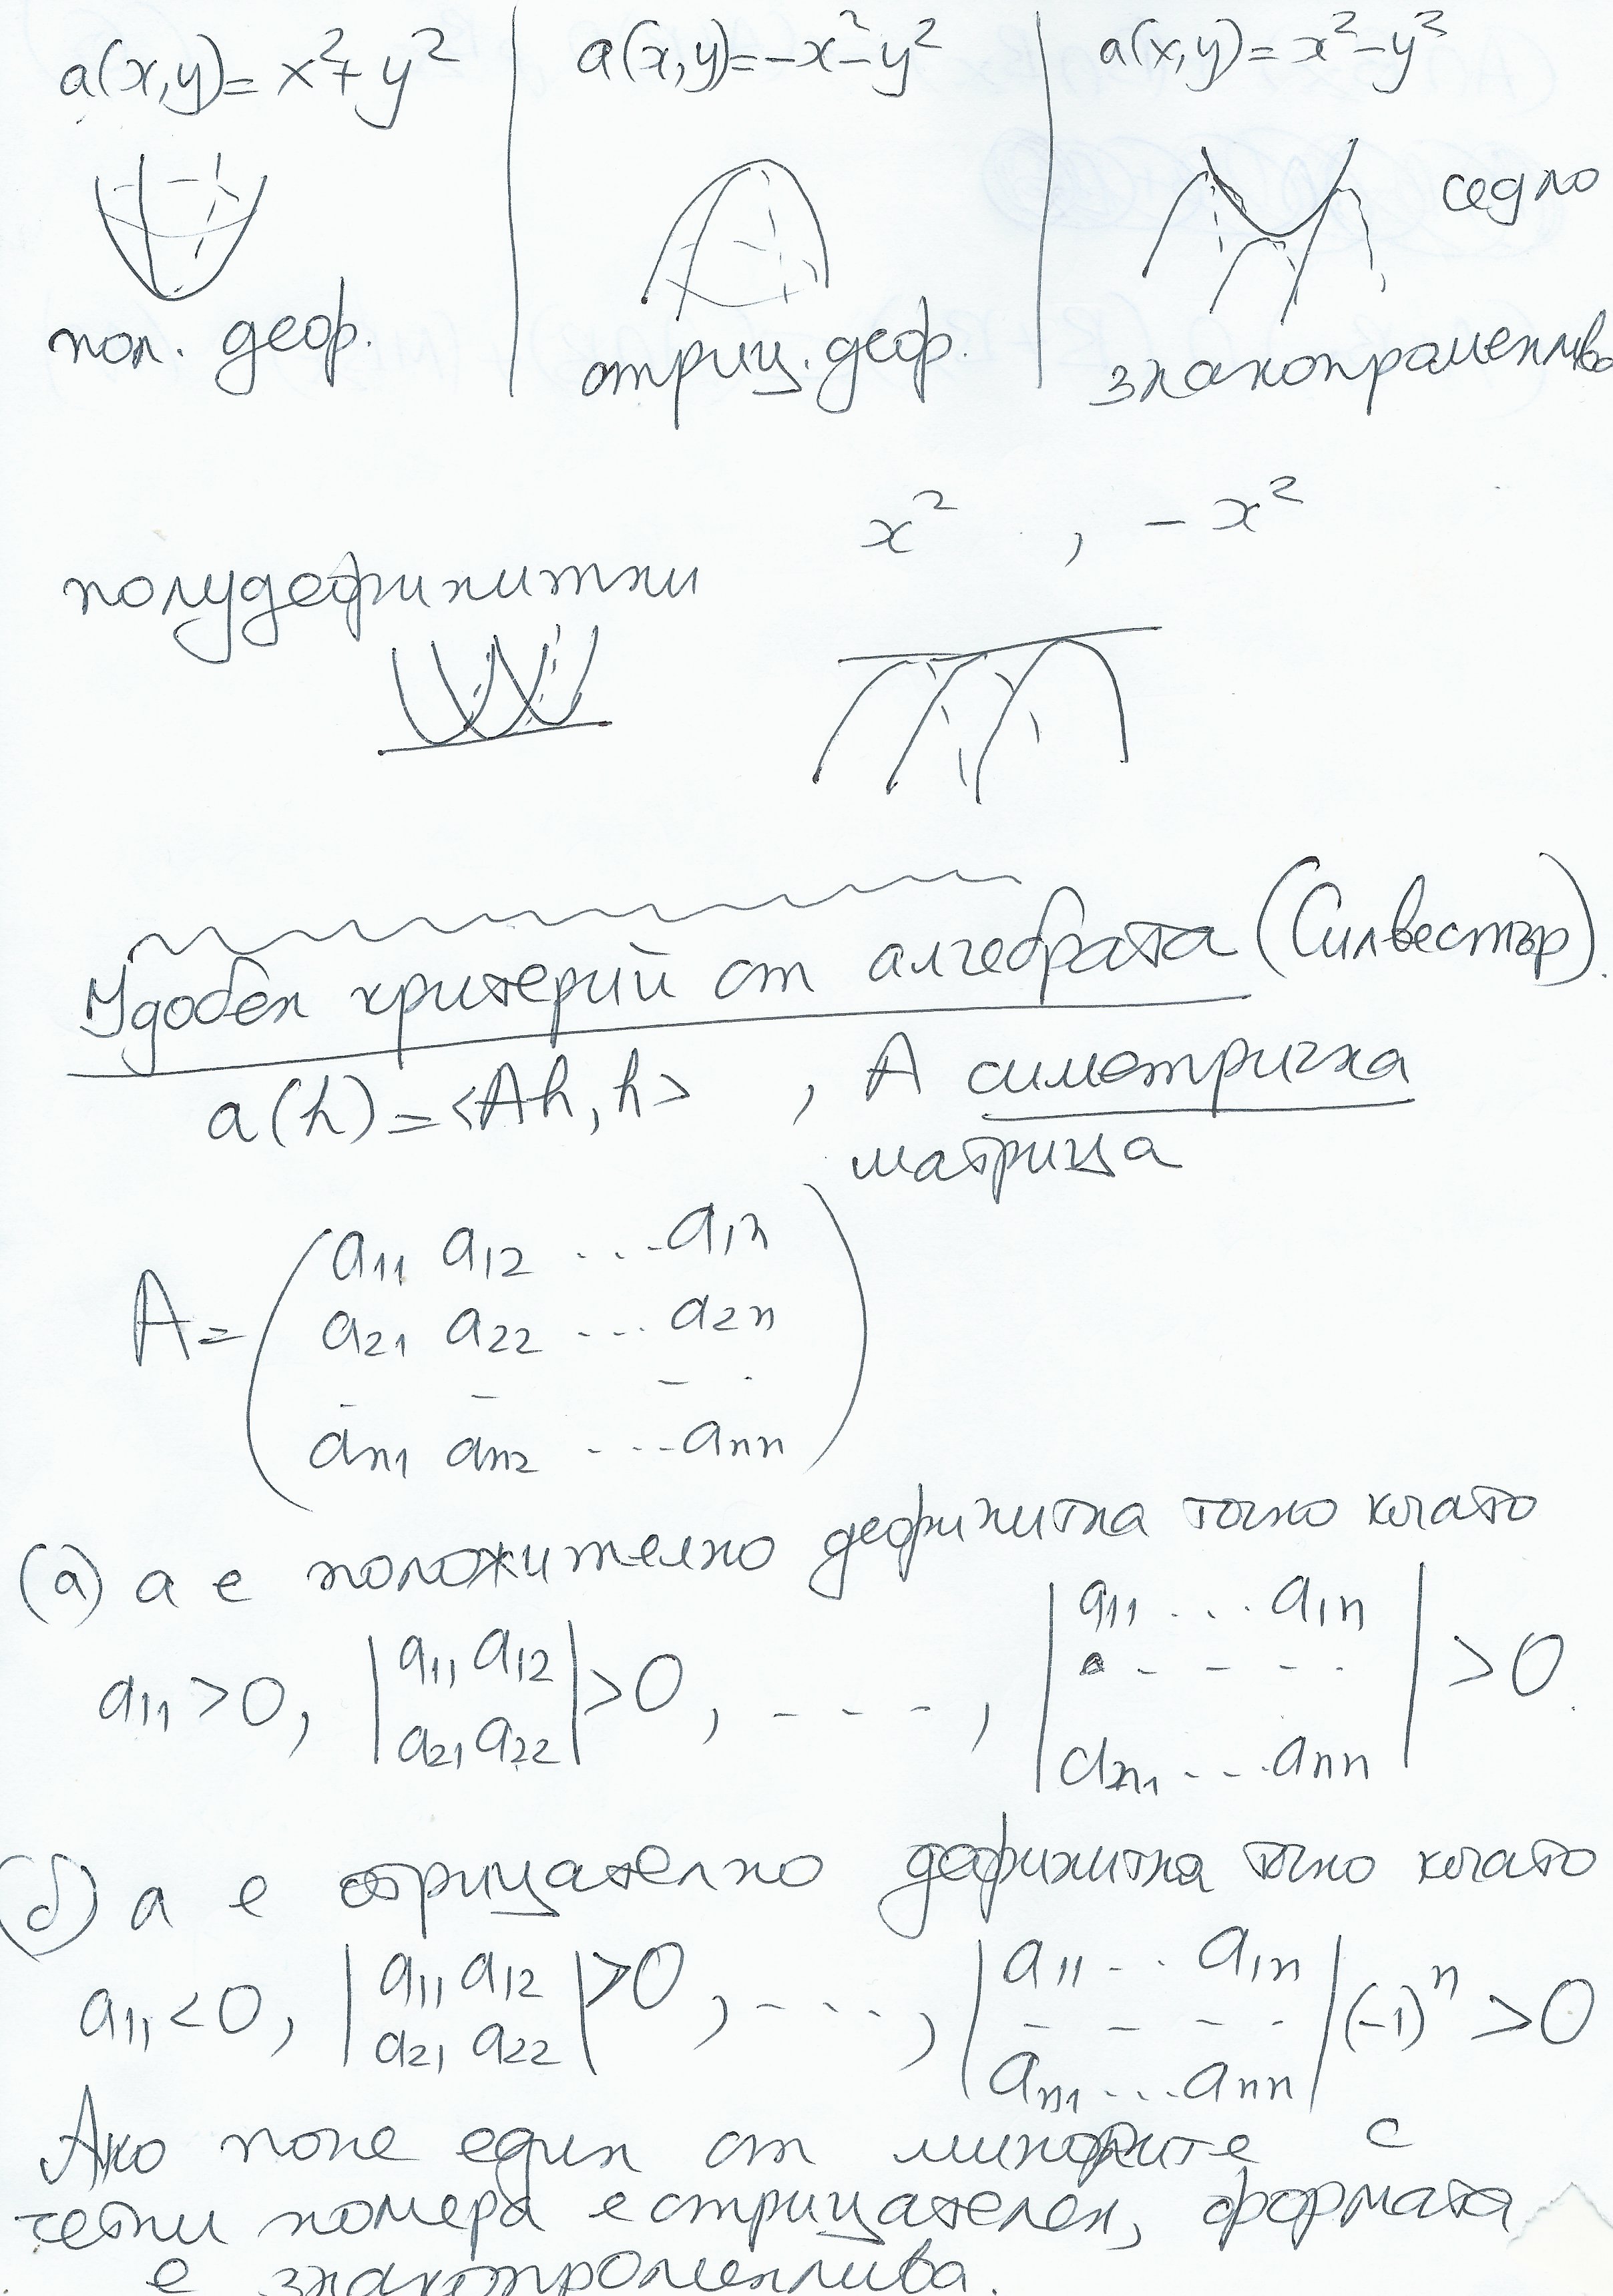 a(x,y)= x²+y² | a(x,y)=-x²-y² | a(x,y)= x²-y²
седло
пол. деф. | отриц. деф. | знакопроменлива
x² , -x²
полудефинитни
Удобен критерий от алгебрата (Силвестър).
a(h)=<Ah, h> , A симетрична
матрица
a₁₁ a₁₂ ... a₁ₙ
A= a₂₁ a₂₂ ... a₂ₙ
- - - .
aₙ₁ aₙ₂ ... aₙₙ
(а) a е положително дефинитна точно когато
a₁₁>0, |a₁₁ a₁₂ a₂₁ a₂₂|>0, - - - , |a₁₁ ... a₁ₙ - - - - aₙ₁ ... aₙₙ| >0.
(б) a е отрицателно дефинитна точно когато
a₁₁<0, |a₁₁ a₁₂ a₂₁ a₂₂|>0, - ... , |a₁₁ ... a₁ₙ - - - - aₙ₁ ... aₙₙ|(-1)ⁿ >0
Ако поне един от минорите с
четни номера е отрицателен, формата
е знакопроменлива.